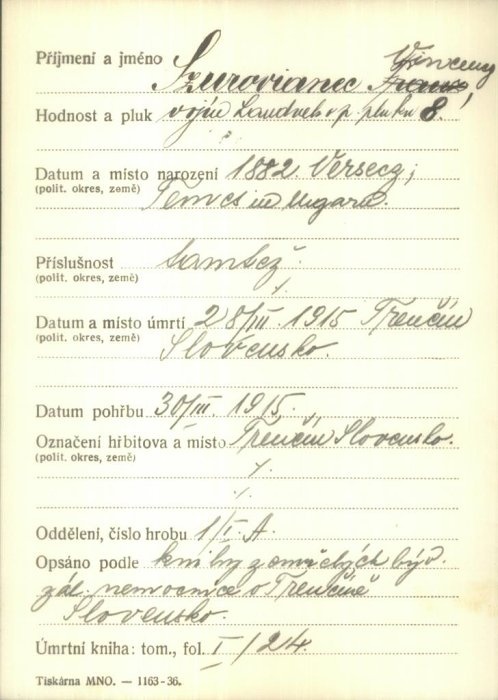 Vincenz
Příjmení a jméno Szurovianec Franz
Hodnost a pluk vojín Landveh. p. pluku 8.
Datum a místo narození 1882. Versecz,
(polit. okres, země) Temes in Ungarn.
Příslušnost tamtéž.
(polit. okres, země)
Datum a místo úmrtí 28/III. 1915 Trenčín
(polit. okres, země) Slovensko.
Datum pohřbu 30/III. 1915.
Označení hřbitova a místo Trenčín Slovensko.
(polit. okres, země)
Oddělení, číslo hrobu 1/I. A.
Opsáno podle knihy zemřelých býv.
zál. nemocnice v Trenčíně
Slovensko.
Úmrtní kniha: tom., fol. I/24.
Tiskárna MNO. — 1163-36.